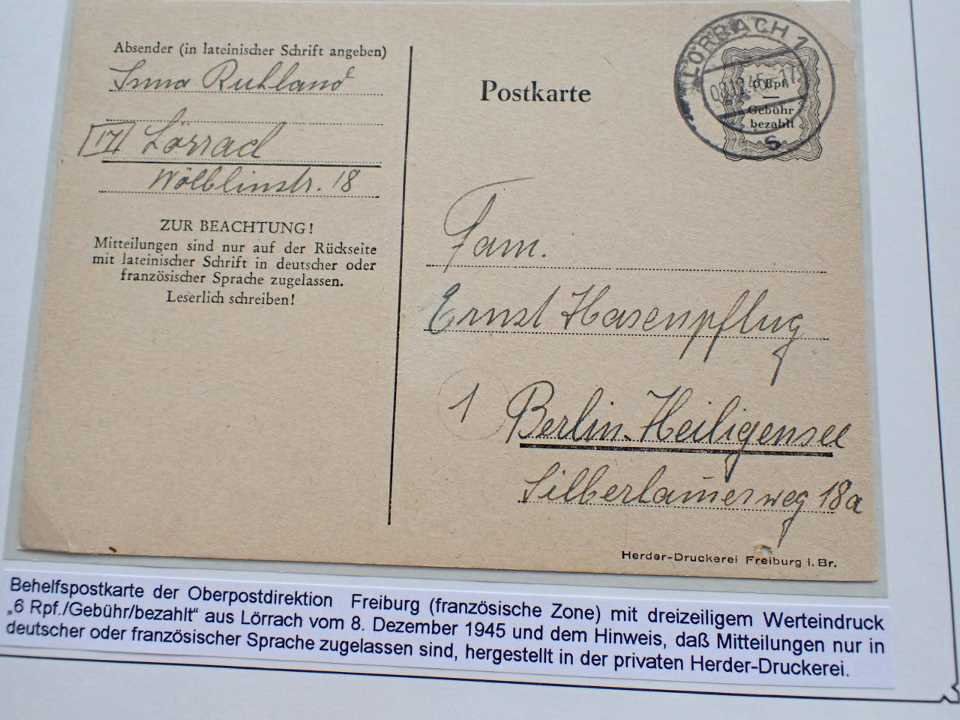 Absender (in lateinischer Schrift angeben)
Irma Ruhland
Lörrach
Wölblinstr. 18
ZUR BEACHTUNG!
Mitteilungen sind nur auf der Rückseite
mit lateinischer Schrift in deutscher oder
französischer Sprache zugelassen.
Leserlich schreiben!
Postkarte
LÖRRACH 1
08.12.45.-17
s
6 Rpf.
Gebühr
bezahlt
Fam.
Ernst Hasenpflug
1 Berlin-Heiligensee
18a
Herder-Druckerei Freiburg i. Br.
Behelfspostkarte der Oberpostdirektion Freiburg (französische Zone) mit dreizeiligem Werteindruck
„6 Rpf./Gebühr/bezahlt“ aus Lörrach vom 8. Dezember 1945 und dem Hinweis, daß Mitteilungen nur in
deutscher oder französischer Sprache zugelassen sind, hergestellt in der privaten Herder-Druckerei.